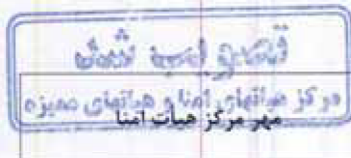 تصویر نسب شوش
مرکز هیاتهای امنا و هیاتهای ممیزه
مهر مرکز هیات امنا